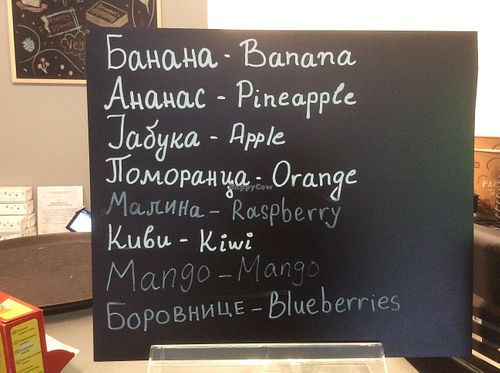 Банана - Banana
Ананас - Pineapple
Јабука - Apple
Поморанџа - Orange
Малина - Raspberry
Киви - Kiwi
Mango - Mango
Боровнице - Blueberries
HappyCow